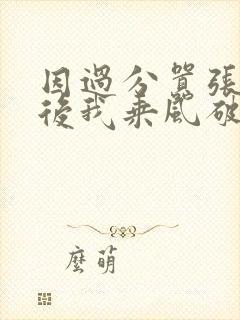 因過分囂張
後我乘風破
麼萌